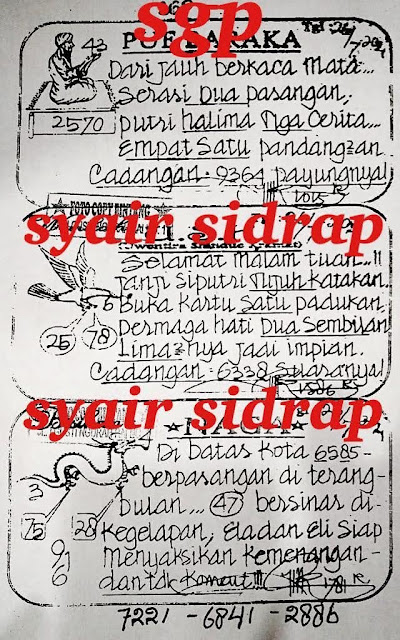 sgp
PUF LARAKA
43
Dari jauh berkaca Mata...
Serasi Dua pasangan,
2570
putri halima Tiga Cerita...
Empat Satu pandangan
Cadangan. 9364 payungnya!
★ FOTO COPY BINTANG
syair sidrap
Selamat Malam tuan...!!
Janji Siputri Tujuh Katakan..
6
Buka Kartu Satu padukan
25 78
Dermaga hati Dua Sembilan
Lima²nya jadi impian.
Cadangan. 6338 Suaranya!
syair sidrap
★NAGA★
4
Di batas Kota 6585-
berpasangan di terang-
3
bulan... 47 bersinar di-
75 28
kegelapan, Ela dan Eli Siap
9
1
6
Menyaksikan Kemenangan-
dan tdk Komaut!!!
7221 - 6841 - 2886